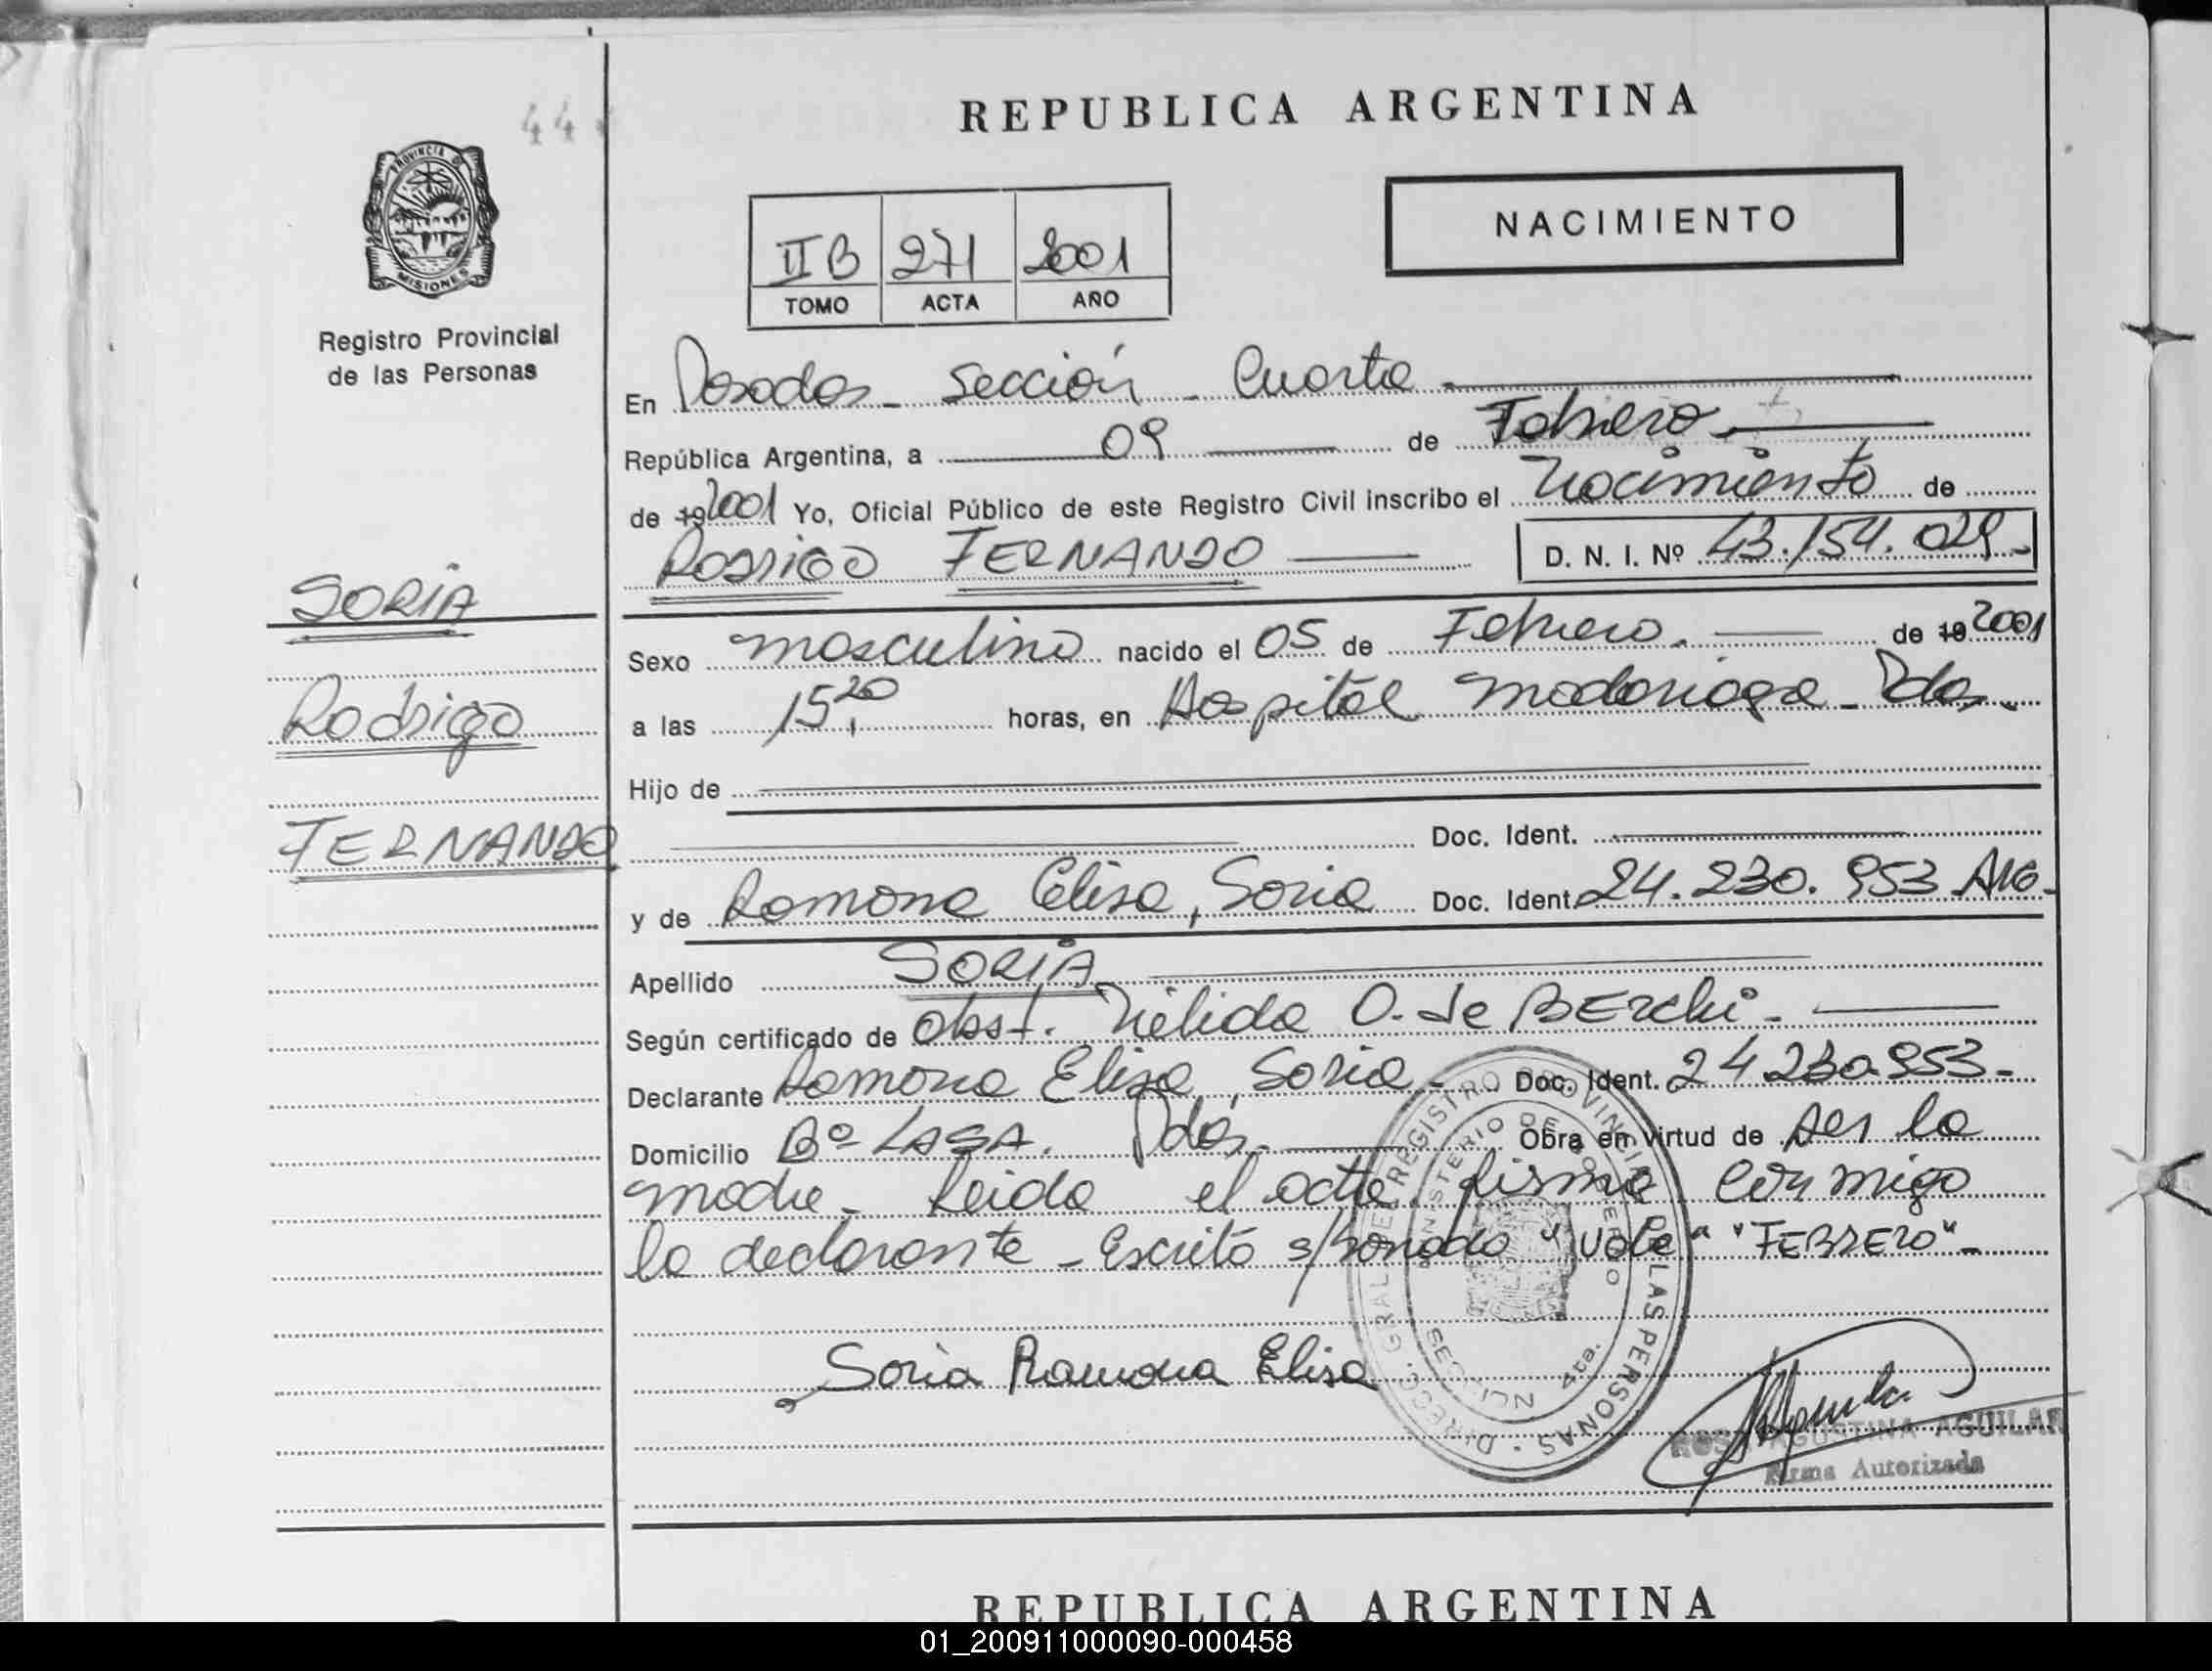 44
REPUBLICA ARGENTINA
PROVINCIA DE MISIONES
NACIMIENTO
II B 271 2001
TOMO ACTA AÑO
Registro Provincial
de las Personas
En Posadas - Sección - Cuarta
República Argentina, a 09 de Febrero
de 192001 Yo, Oficial Público de este Registro Civil inscribo el Nacimiento de
Rodrigo FERNANDO D. N. I. Nº 43.154.029.-
SORIA
Rodrigo
FERNANDO
Sexo masculino nacido el 05 de Febrero. de 19 2001
a las 15,20 horas, en Hospital Madariaga - Pdas.
Hijo de
Doc. Ident.
y de Ramona Elisa, Soria Doc. Ident. 24.230.953 ARG.
Apellido SORIA
Según certificado de Obst. Nélida O. de BERchi.
Declarante Ramona Elisa, Soria. Doc. Ident. 24.230.953.-
Domicilio Bº LASA. Pdas. Obra en virtud de ser la
madre. Leida el acta, firma conmigo
la declarante - Escrito s/ "vale" "FEBRERO".-
Soria Ramona Elisa
DIRECC. GRAL. DEL REGISTRO PROVINCIAL DE LAS PERSONAS
MINISTERIO DE GOBIERNO
SECCION 4ta.
ROSA AGUSTINA AGUILAR
Firma Autorizada
REPUBLICA ARGENTINA
01_200911000090-000458